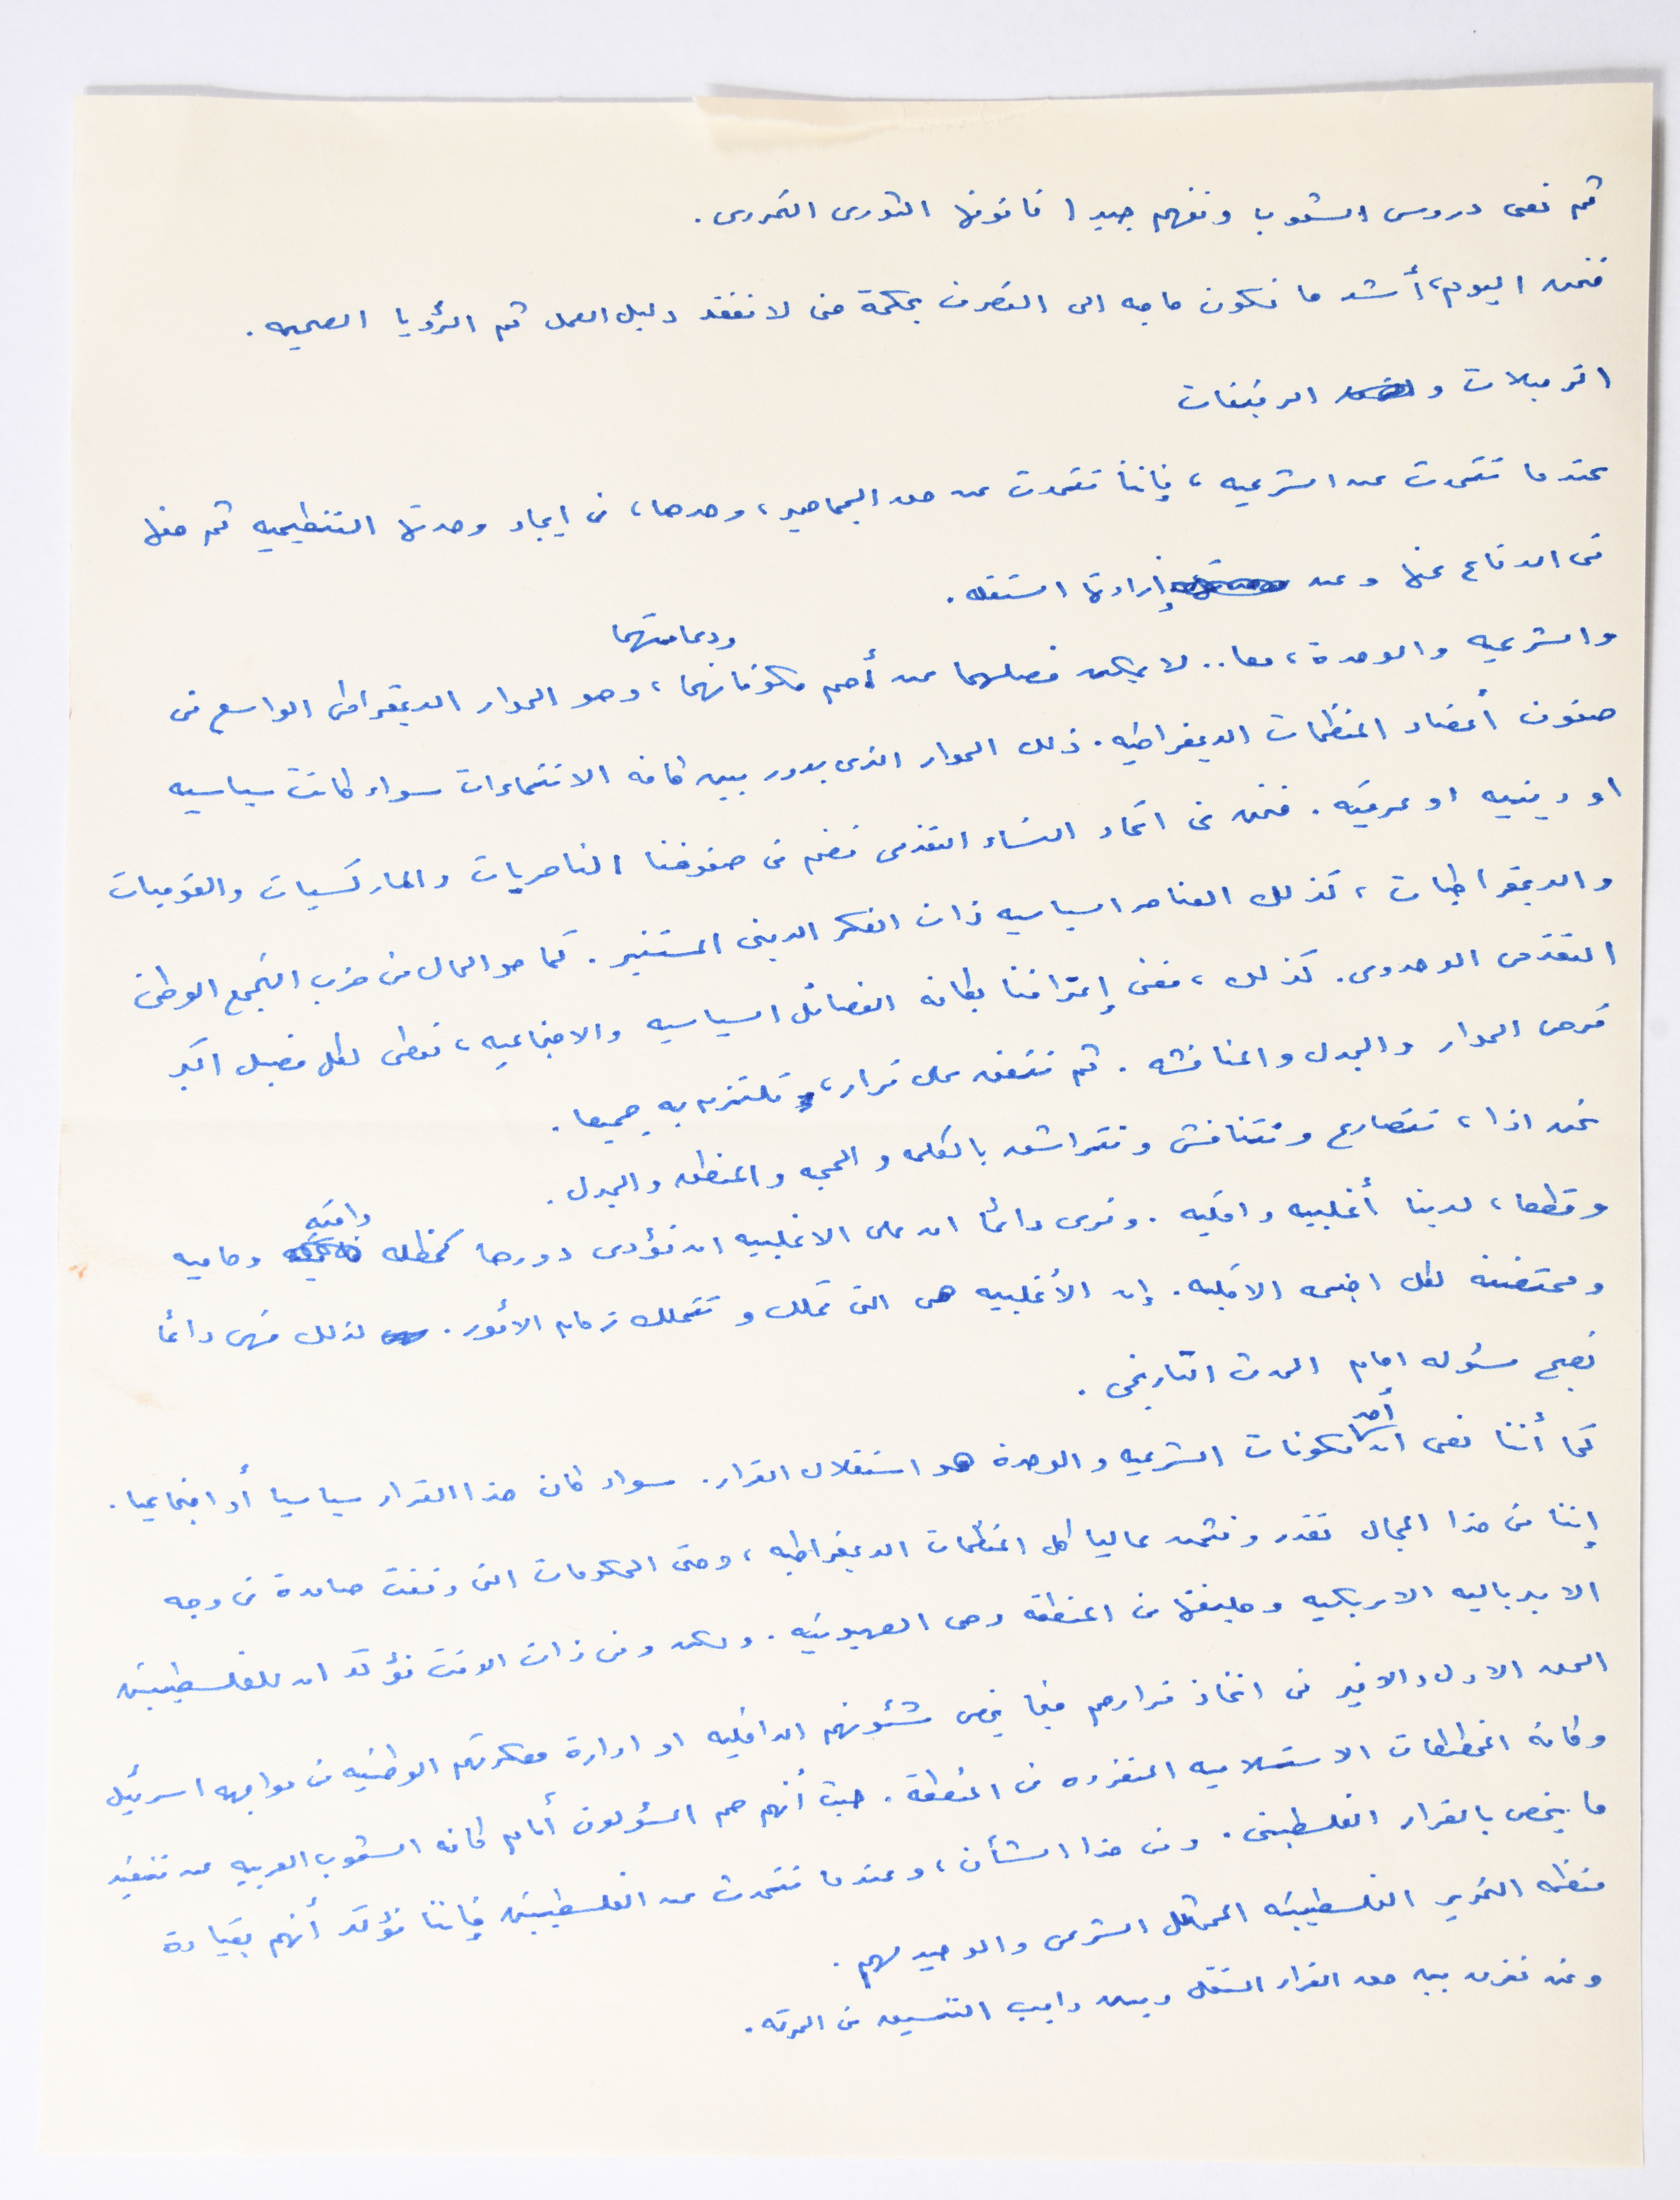 ثم نعى دروس الشعوب ونفهم جيدا قانونها الثورى التحررى.
فنحن اليوم، أشد ما نكون حاجه الى التصرف بحكمة حتى لا نفقد دليل العمل ثم الرؤيا الصحيحه.
الزميلات و الرفيقات
عندما نتحدث عن الشرعيه، فإننا نتحدث عن حق الجماهير، وحدها، فى ايجاد وحدتها التنظيميه ثم حقها
فى الدفاع عنها وعن إرادتها المستقله.
ودعامتهما
والشرعيه والوحدة، معا.. لا يمكن فصلهما عن أهم مكوناتهما، وهو الحوار الديمقراطى الواسع فى
صفوف أعضاء المنظمات الديمقراطيه. ذلك الحوار الذى يدور بين كافه الانتماءات سواء كانت سياسيه
او دينيه او عرقيه. فنحن فى اتحاد النساء التقدمى نضم فى صفوفنا الناصريات والماركسيات والقوميات
والديمقراطيات، كذلك العناصر السياسيه ذات الفكر الدينى المستنير. كما هو الحال فى حزب التجمع الوطنى
التقدمى الوحدوى. كذلك، ففى إعترافنا بكافه الفصائل السياسيه والاجتماعيه، نعطى لكل فصيل اكبر
فرص الحوار والجدل والمناقشه. ثم نتفق على قرار، و نلتزم به جميعا.
نحن اذا، نتصارع ونتنافش ونتراشق بالكلمه والحجه والمنطق والجدل.
وقطعا، لدينا أغلبيه واقليه. ونرى دائما ان على الاغلبيه ان تؤدى دورها كمظله واقيه وحاميه
ومحتضنه لكل اجنحه الاقليه. إن الأغلبيه هى التى تملك و تتملك زمام الأمور. لذلك فهى دائما
تصبح مسئوله امام الحدث التاريخى.
كما أننا نعى ان أحد مكونات الشرعيه والوحدة هو استقلال القرار. سواء كان هذا القرار سياسيا أو اجتماعيا.
إننا فى هذا المجال نقدر ونثمن عاليا كل المنظمات الديمقراطيه، وحتى الحكومات التى وقفت صامدة فى وجه
الامبرياليه الامريكيه وحليفتها فى المنطقه وهى الصهيونيه. ولكن وفى ذات الوقت نؤكد ان للفلسطينين
الحق الاول والاخير فى اتخاذ قرارهم فيما يخص شئونهم الداخليه او ادارة معركتهم الوطنيه فى مواجهه اسرئيل
وكافة المخططات الاستسلاميه المنفرده فى المنطقة. حيث أنهم هم المسؤلون أمام كافه الشعوب العربيه عن تنفيذ
ما يختص بالقرار الفلسطينى. وفى هذا الشأن، وعندما نتحدث عن الفلسطينين فإننا نؤكد أنهم بقيادة
منظمه التحرير الفلسطينيه الممثل الشرعى والوحيد لهم.
ونحن نفرق بين حق القرار المستقل وبين واجب التنسيق فى الحركه.